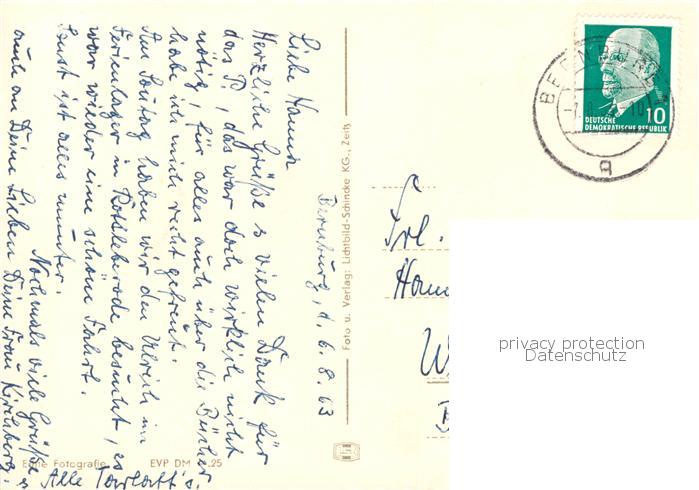 Bernburg, d. 6.8.63
Liebe Hanna
Herzliche Grüße u vielen Dank für
das P., das war doch wirklich nicht
nötig für alles auch über die Bücher
habe ich mich recht gefreut.
Am Sonntag haben wir den Ulrich im
Ferienlager in Rottleberode besucht, es
war wieder eine schöne Fahrt.
Sonst ist alles munter.
Nochmals viele Grüße
auch an Deine Lieben Deine Frau Kirchberg.
Alle
Foto u. Verlag: Lichtbild-Schincke KG., Zeitz
Echte Fotografie EVP DM 0.25
BERNBURG
DEUTSCHE
DEMOKRATISCHE REPUBLIK
10
Frl.
privacy protection
Datenschutz